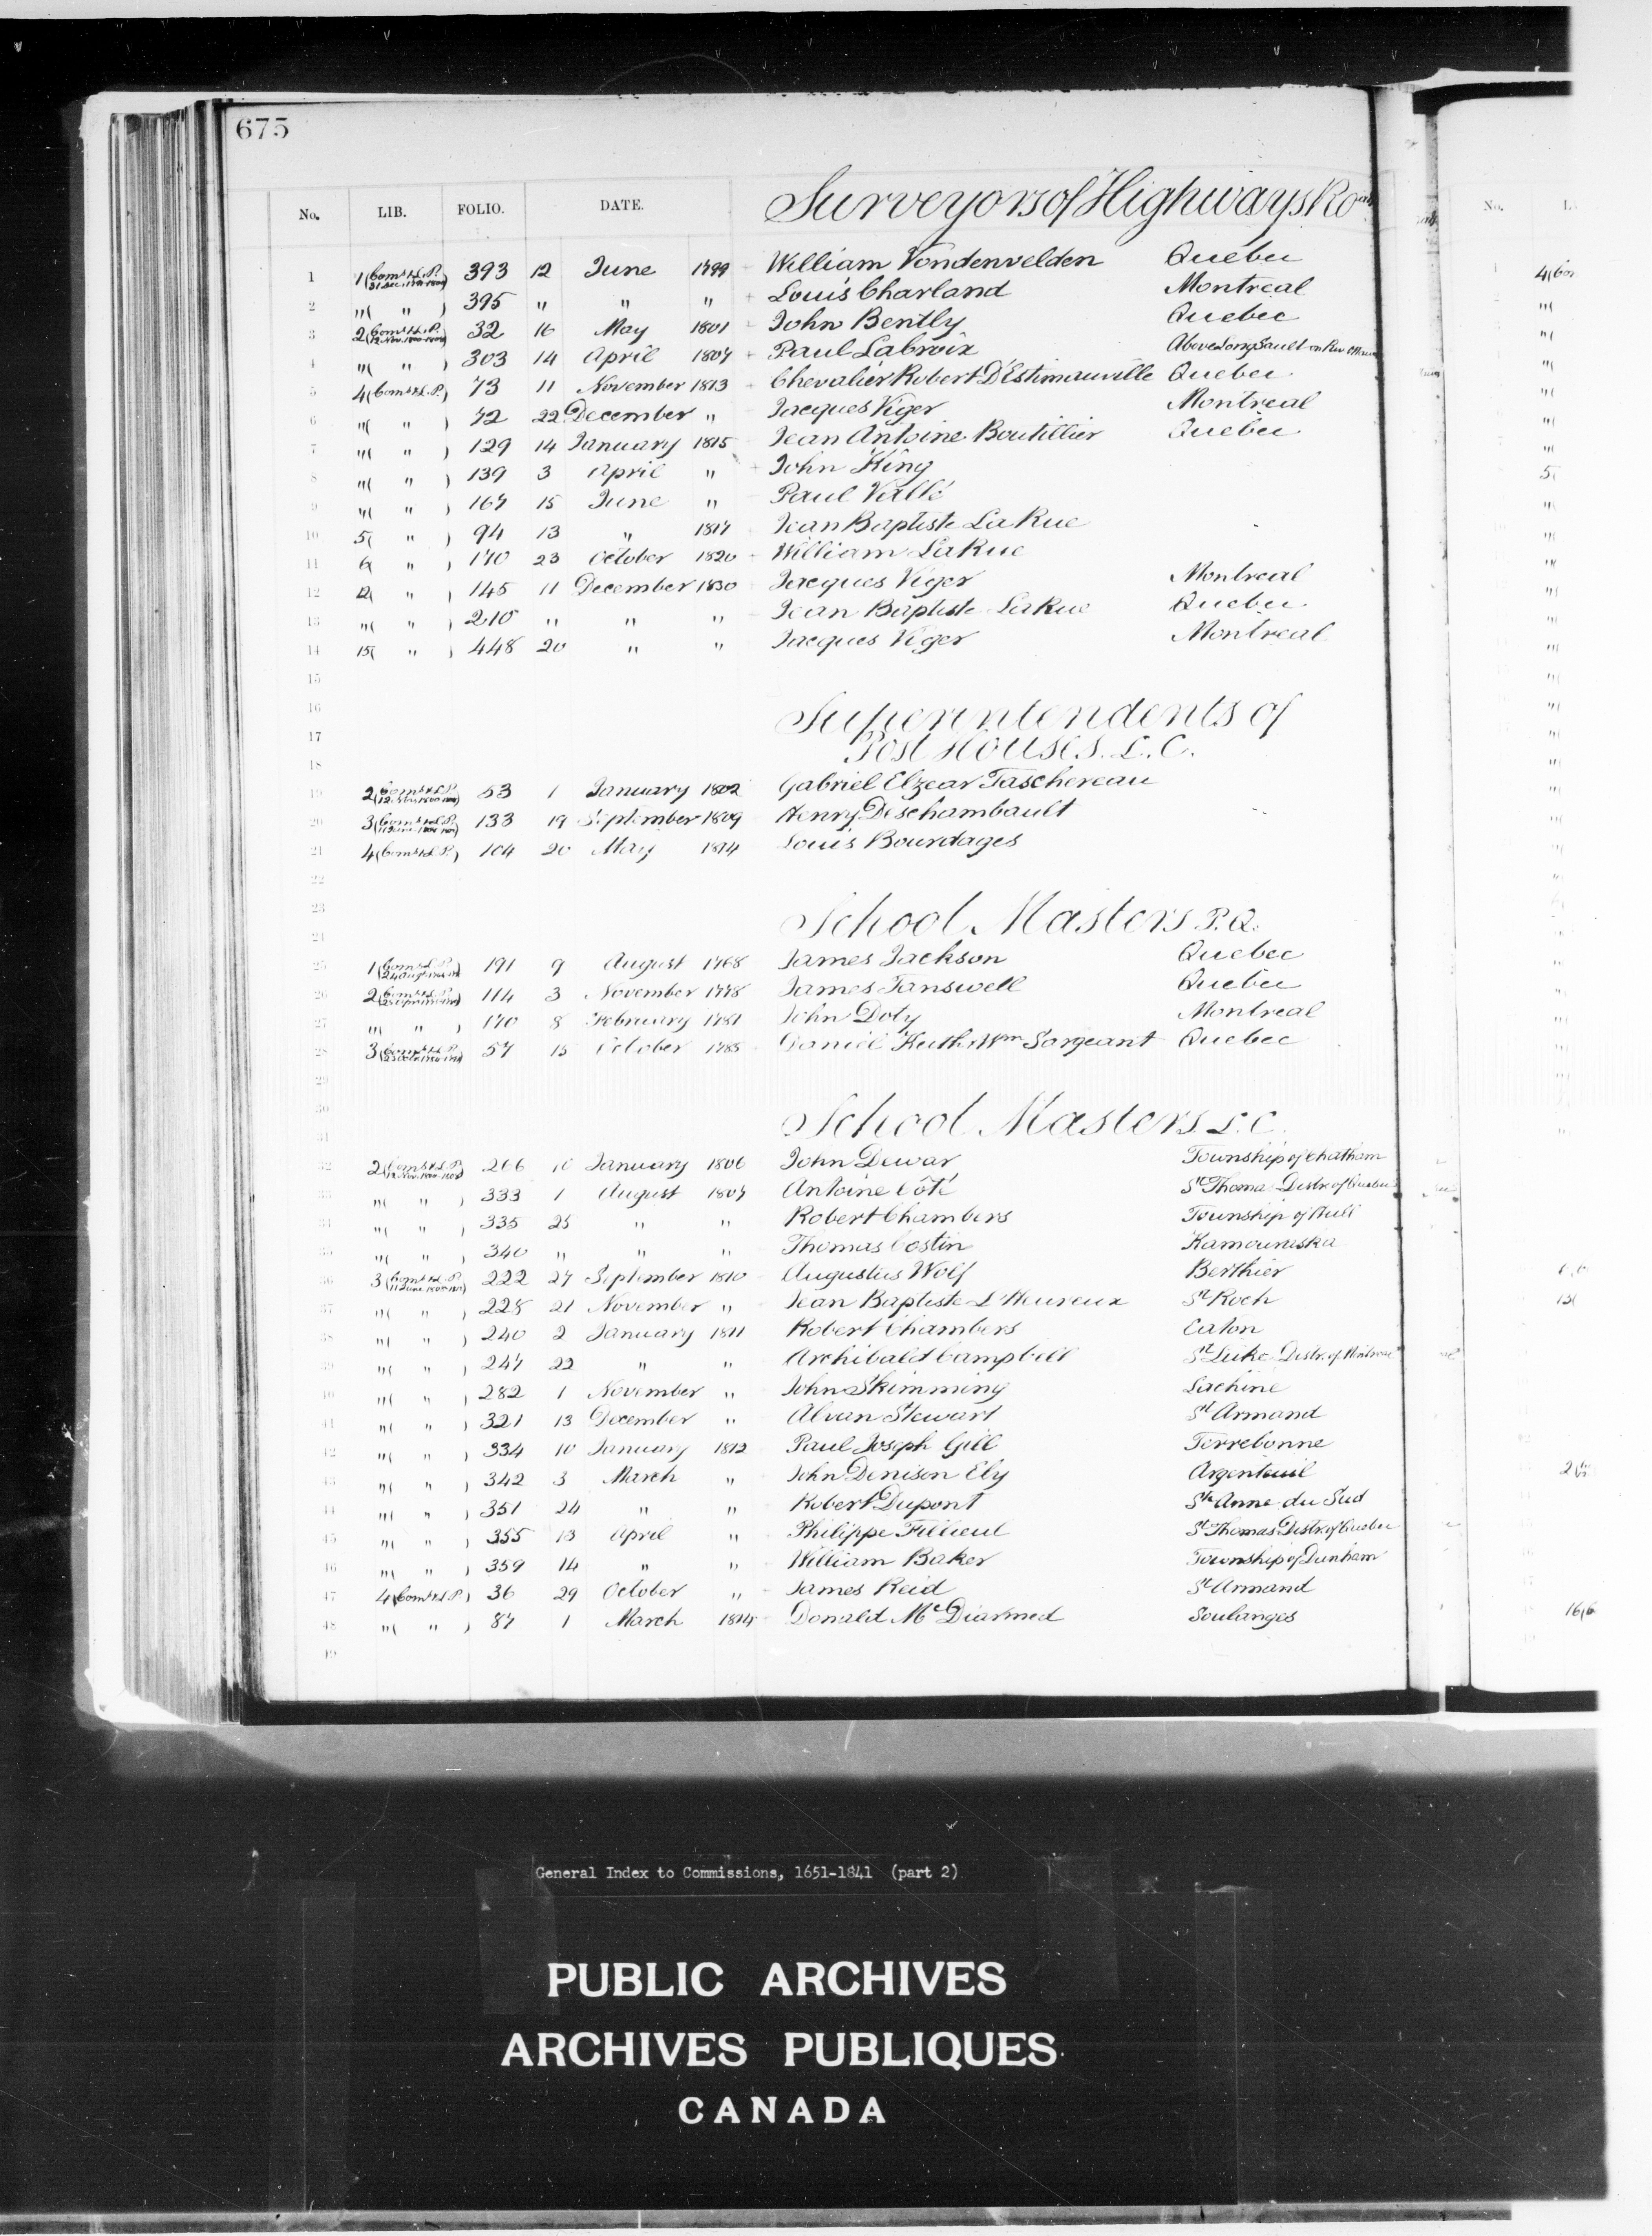 675
No. LIB. FOLIO. DATE. Surveyors of Highways Roads
1 1 (Coms & L.P.) 393 12 June 1799 William Vondenvelden Quebec
2 " ( " ) 395 " " " Louis Charland Montreal
3 2 (Coms & L.P. 12 Nov. 1800-1808) 32 16 May 1801 John Bently Quebec
4 " ( " ) 303 14 April 1807 Paul Labroix Above Long Sault on Riv.
5 4 (Coms & L.P.) 73 11 November 1813 Chevalier Robert D'Estimauville Quebec
6 " ( " ) 72 22 December " Jacques Viger Montreal
7 " ( " ) 129 14 January 1815 Jean Antoine Boutillier Quebec
8 " ( " ) 139 3 April " John King
9 " ( " ) 167 15 June " Paul Vallé
10 5 ( " ) 94 13 " 1817 Jean Baptiste LaRue
11 6 ( " ) 170 23 October 1820 William LaRue
12 12 ( " ) 145 11 December 1830 Jacques Viger Montreal
13 " ( " ) 210 " " " Jean Baptiste LaRue Quebec
14 15 ( " ) 448 20 " " Jacques Viger Montreal
15
16 Superintendents of
17 Post Houses. L.C.
18
19 2 (Coms & L.P. 12 Nov. 1800-1808) 53 1 January 1802 Gabriel Elzear Taschereau
20 3 (Coms & L.P.) 133 19 September 1809 Henry Deschambault
21 4 (Coms & L.P.) 104 20 May 1814 Louis Bourdages
22
23 School Masters P.Q.
24
25 1 (Coms & L.P.) 191 9 August 1768 James Jackson Quebec
26 2 (Coms & L.P.) 114 3 November 1778 James Tanswell Quebec
27 " ( " ) 170 8 February 1781 John Doty Montreal
28 3 (Coms & L.P.) 57 15 October 1785 Daniel Keith & Wm Sargeant Quebec
29
30 School Masters L.C.
31
32 2 (Coms & L.P. 12 Nov. 1800-1808) 206 10 January 1806 John Dewar Township of Chatham
33 " ( " ) 333 1 August 1807 Antoine Côté St Thomas Distr. of Quebec
34 " ( " ) 335 25 " " Robert Chambers Township of Hull
35 " ( " ) 340 " " " Thomas Costin Kamouraska
36 3 (Coms & L.P.) 222 27 September 1810 Augustus Wolf Berthier
37 " ( " ) 228 21 November " Jean Baptiste L'Heureux St Roch
38 " ( " ) 240 2 January 1811 Robert Chambers Eaton
39 " ( " ) 247 22 " " Archibald Campbell St Luke Distr. of Montreal
40 " ( " ) 282 1 November " John Skimming Lachine
41 " ( " ) 321 13 December " Alvan Stewart St Armand
42 " ( " ) 334 10 January 1812 Paul Joseph Gill Terrebonne
43 " ( " ) 342 3 March " John Denison Ely Argenteuil
44 " ( " ) 351 24 " " Robert Dupont Ste Anne du Sud
45 " ( " ) 355 13 April " Philippe Fillieul St Thomas Distr. of Quebec
46 " ( " ) 359 14 " " William Baker Township of Dunham
47 4 (Coms & L.P.) 36 29 October " James Reid St Armand
48 " ( " ) 87 1 March 1814 Donald McDiarmed Soulanges
49
General Index to Commissions, 1651-1841 (part 2)
PUBLIC ARCHIVES
ARCHIVES PUBLIQUES
CANADA